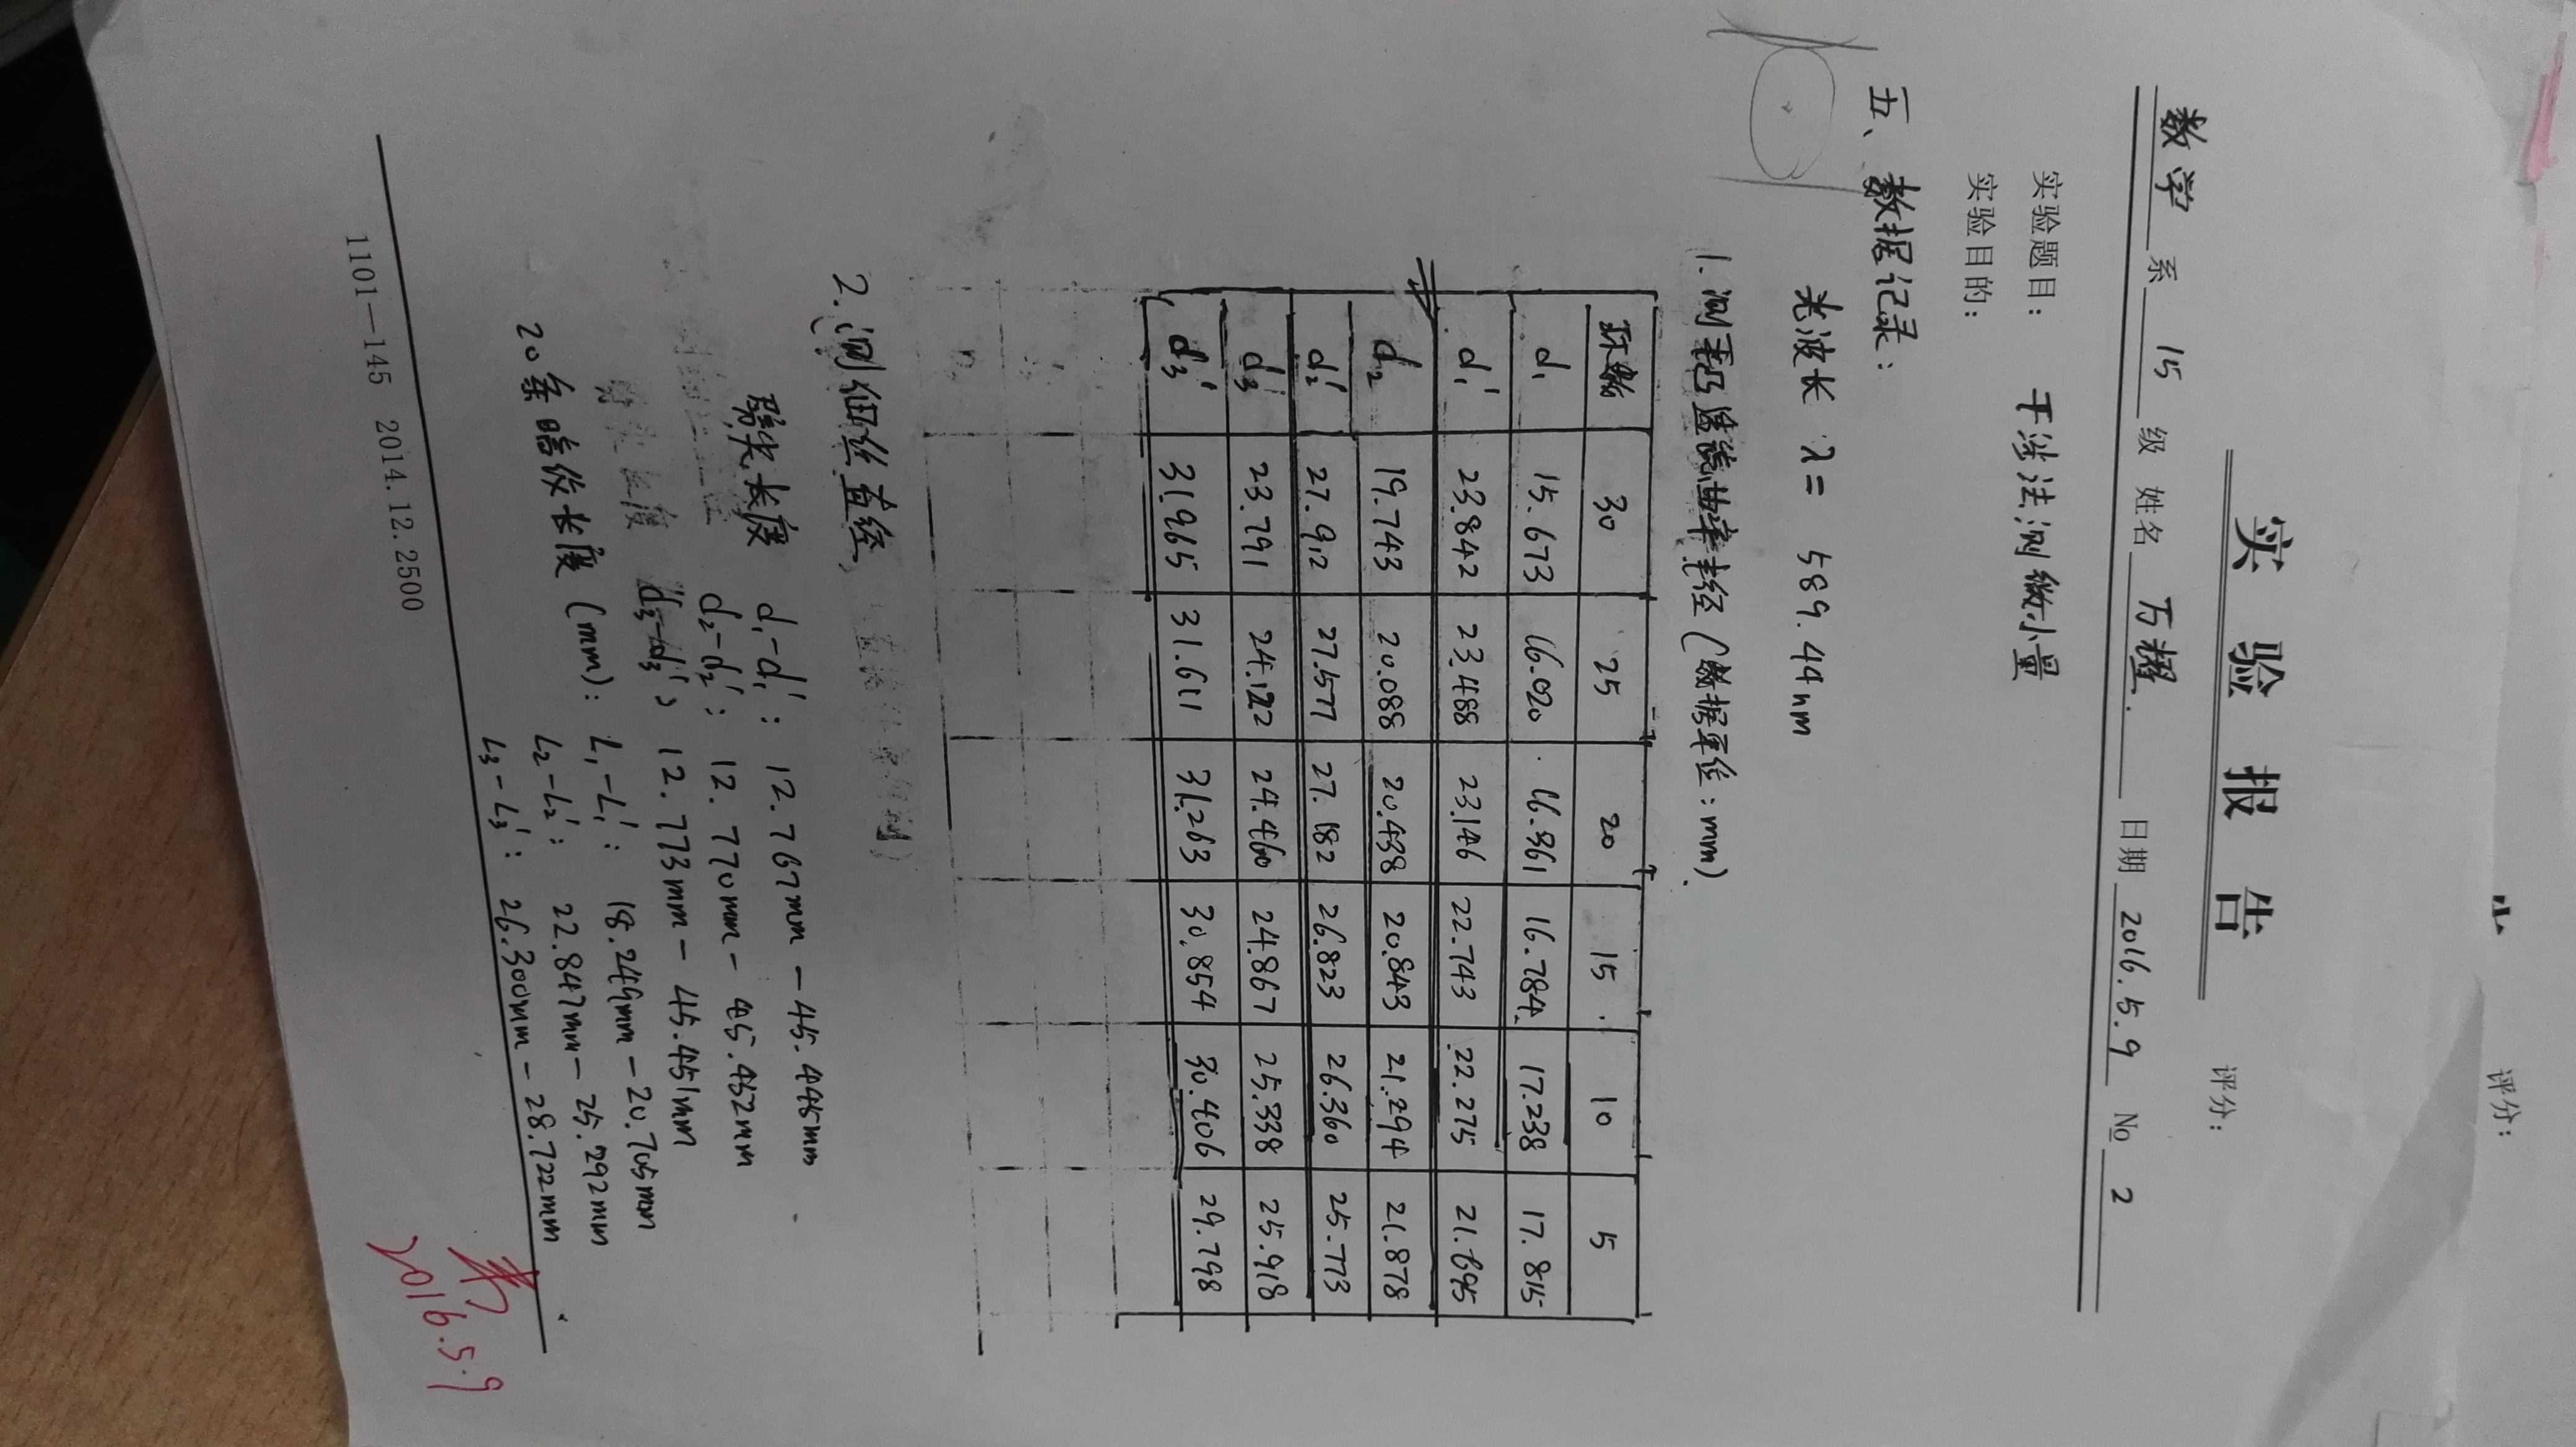 评分:
实验报告
评分:
数学 系 15 级 姓名 万耀. 日期 2016.5.9 No 2
实验题目: 干涉法测微小量
实验目的:
五、数据记录:
光波长 λ= 589.44nm
1.测平凸透镜曲率半径(数据单位:mm).
环数 30 25 20 15 10 5
d1 15.673 16.020 16.361 16.784 17.238 17.815
d1' 23.842 23.488 23.146 22.743 22.275 21.695
d2 19.743 20.088 20.438 20.843 21.294 21.878
d2' 27.912 27.577 27.182 26.823 26.360 25.773
d3 23.791 24.122 24.460 24.867 25.338 25.918
d3' 31.965 31.611 31.263 30.854 30.406 29.798
2.测细丝直径
劈尖长度 d1-d1': 12.767mm-45.448mm
d2-d2': 12.770mm-45.452mm
d3-d3': 12.773mm-45.451mm
20条暗纹长度(mm): L1-L1': 18.249mm-20.705mm
L2-L2': 22.847mm-25.292mm
L3-L3': 26.300mm-28.722mm
2016.5.9
1101—145 2014.12.2500